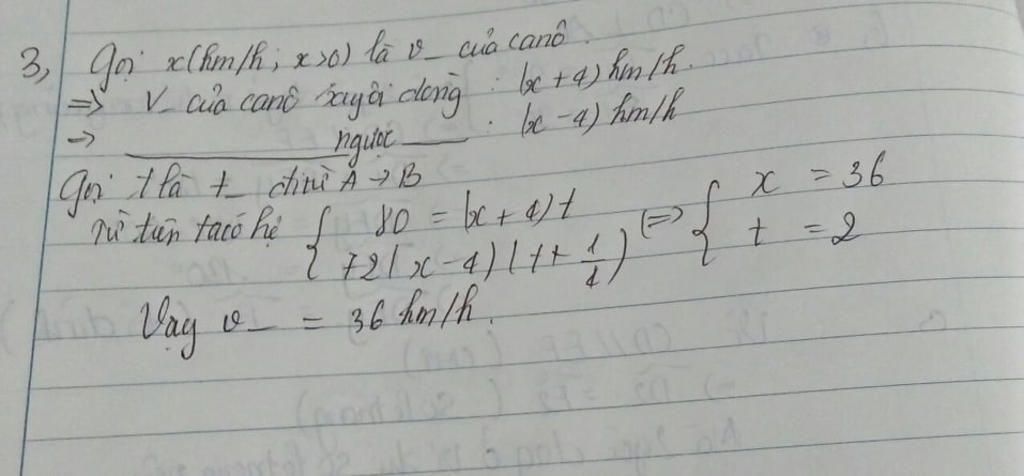 3, Gọi x(km/h; x>0) là v_ của canô.
=> V_ của canô xuôi dòng : (x + 4) km/h.
=> ________ ngược ___ : (x - 4) km/h
Gọi t là t_ đi từ A → B
Từ trên ta có hệ { 80 = (x + 4) t <=> { x = 36
72 ( x - 4) ( t + 1/4 ) t = 2
Vậy v_ = 36 km/h.